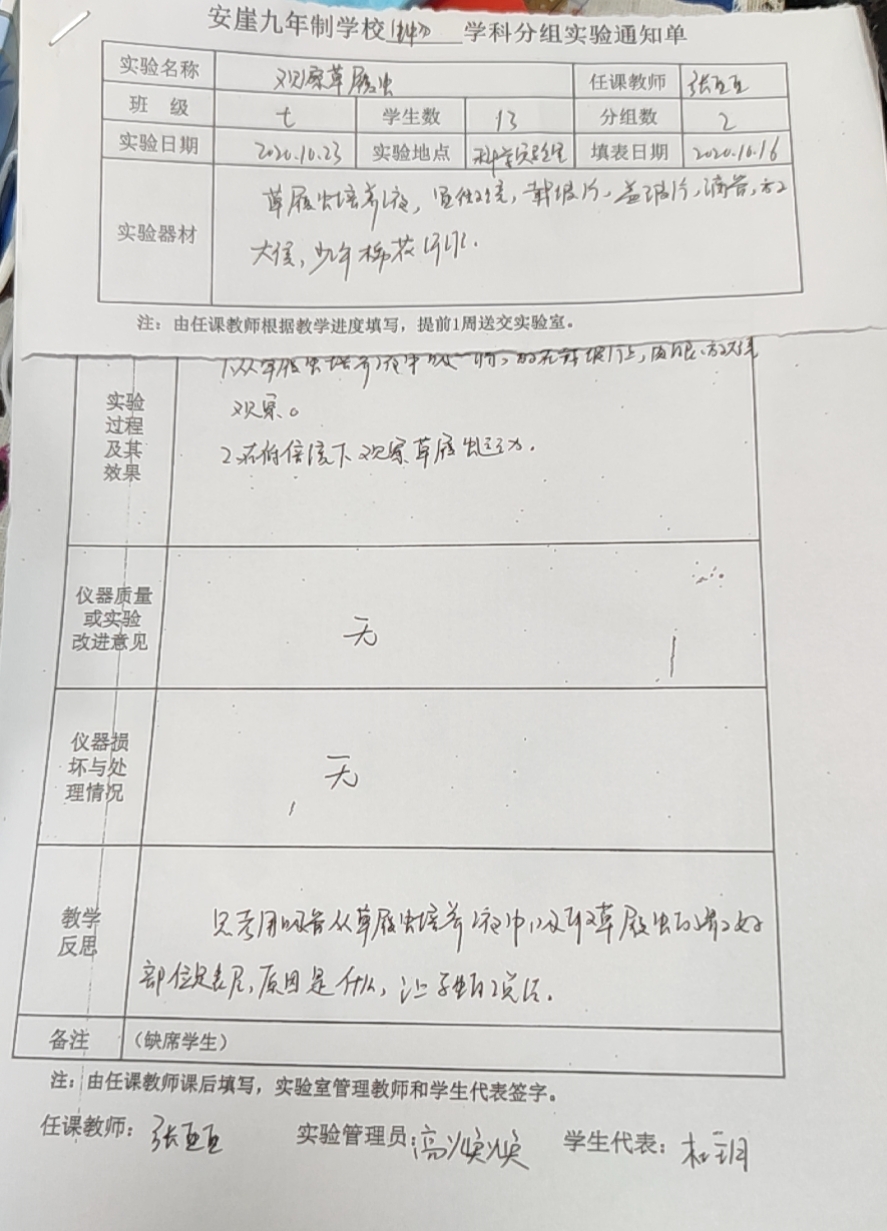 安崖九年制学校 学科分组实验通知单
实验名称 观察草履虫 任课教师 张亚亚
班 级 七 学生数 13 分组数 2
实验日期 2020.10.23 实验地点 科学实验室 填表日期 2020.10.16
实验器材 草履虫培养液,显微镜,载玻片,盖玻片,滴管,放
大镜,少许棉花纤维.
注:由任课教师根据教学进度填写,提前1周送交实验室。
实验过程及其效果
1.从草履虫培养液中吸一滴,放在载玻片上,用肉眼、放大镜
观察。
2.在低倍镜下观察草履虫运动.
仪器质量或实验改进意见 无
仪器损坏与处理情况 无
教学反思
用吸管从草履虫培养液中吸取草履虫的最好
部位是表层,原因是什么,让学生
备注 (缺席学生)
注:由任课教师课后填写,实验室管理教师和学生代表签字。
任课教师: 张亚亚 实验管理员: 高焕焕 学生代表: 杜